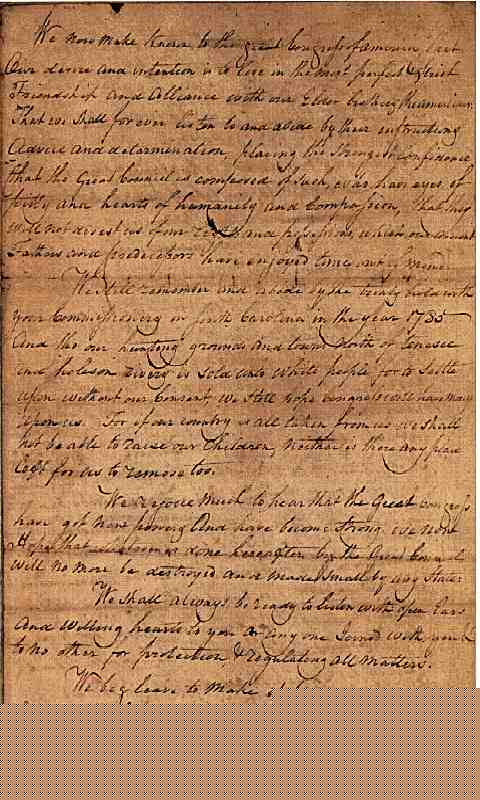 We now make known to the great Congress of america that
Our desire and intention is to live in the most perfect & strict
Friendship and Alliance with our Elder brothers the americans.
That we Shall for ever listen to and abide by their instructing
Advice and determination, placing the Strongest Confidence
that the Great Councel is composed of Such, as have eyes of
pitty and hearts of humanety and Compassion, that they
will not divest us of our rights and possessions, which our antient
Fathers and predicesors have enjoyed time out of mind
We Still remember and abide by the treaty held with
your Commissioners in South Carolina in the year 1785
And tho our hunting grounds and towns North of Tenesee
and holeson rivers is Sold unto White people for to Settle
upon without our Consent, we Still hope congress will have mercy
upon us. For if our country is all taken from us we shall
not be able to raise our Children, Neither is there any place
left for us to remove too.
We rejoice much to hear that the Great congress
have got new powers And have become strong. we now
Hope that whatever is done hereafter by the Great Councel
will no more be destroyed and made Small by any State
We Shall always be ready to listen with open Ears
And willing hearts to you or any one Joined with you &
to no other for protection & regulating All matters.
We beg leave to make